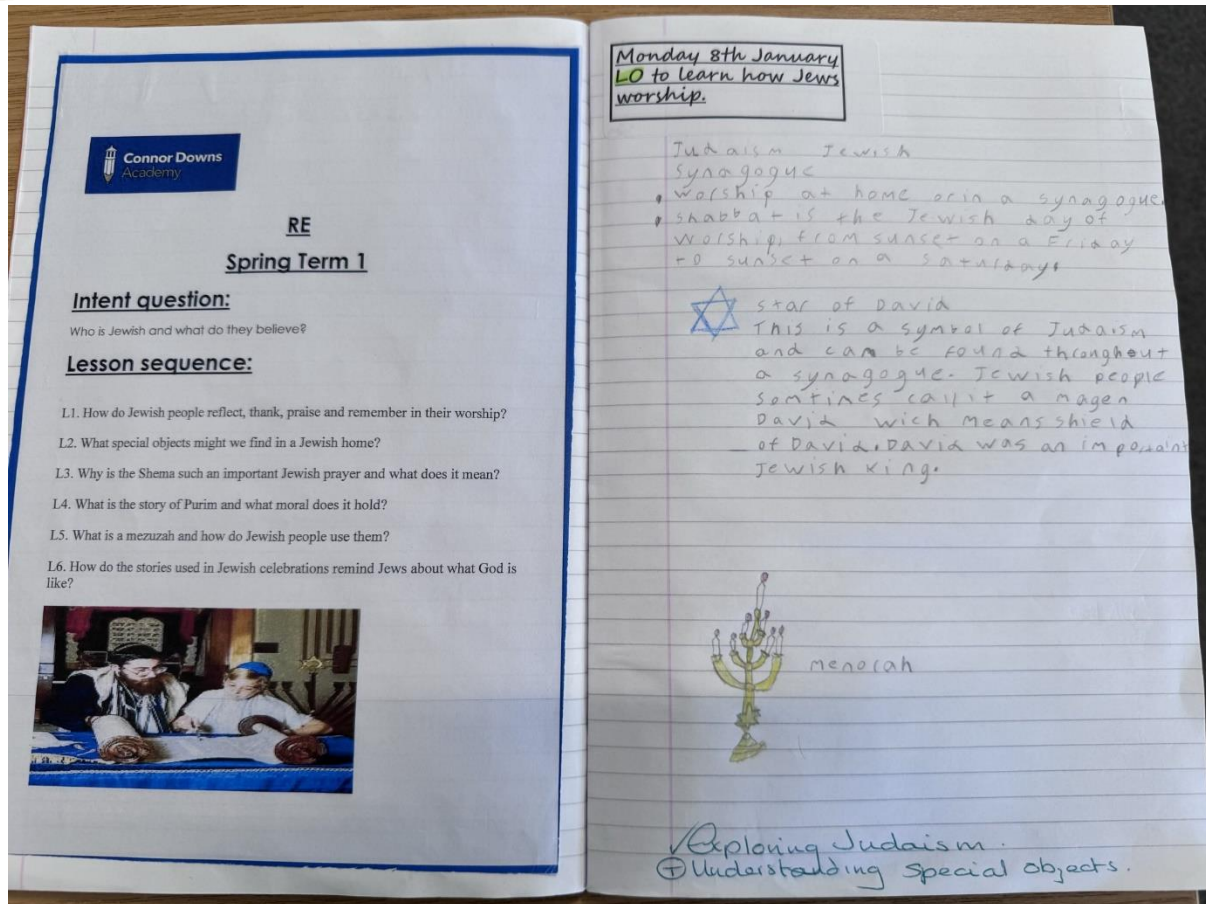 Connor Downs
Academy
RE
Spring Term 1
Intent question:
Who is Jewish and what do they believe?
Lesson sequence:
L1. How do Jewish people reflect, thank, praise and remember in their worship?
L2. What special objects might we find in a Jewish home?
L3. Why is the Shema such an important Jewish prayer and what does it mean?
L4. What is the story of Purim and what moral does it hold?
L5. What is a mezuzah and how do Jewish people use them?
L6. How do the stories used in Jewish celebrations remind Jews about what God is
like?
Monday 8th January
LO to learn how Jews
worship.
Judaism Jewish
Synagogue
• worship at home or in a synagogue.
• shabbat is the Jewish day of
worship, from sunset on a Friday
to sunset on a saturday.
star of David
This is a symbol of Judaism
and can be found throughout
a synagogue. Jewish people
somtimes call it a magen
David wich means shield
of David. David was an important
Jewish king.
menorah
✓ Exploring Judaism.
+ Understanding special objects.